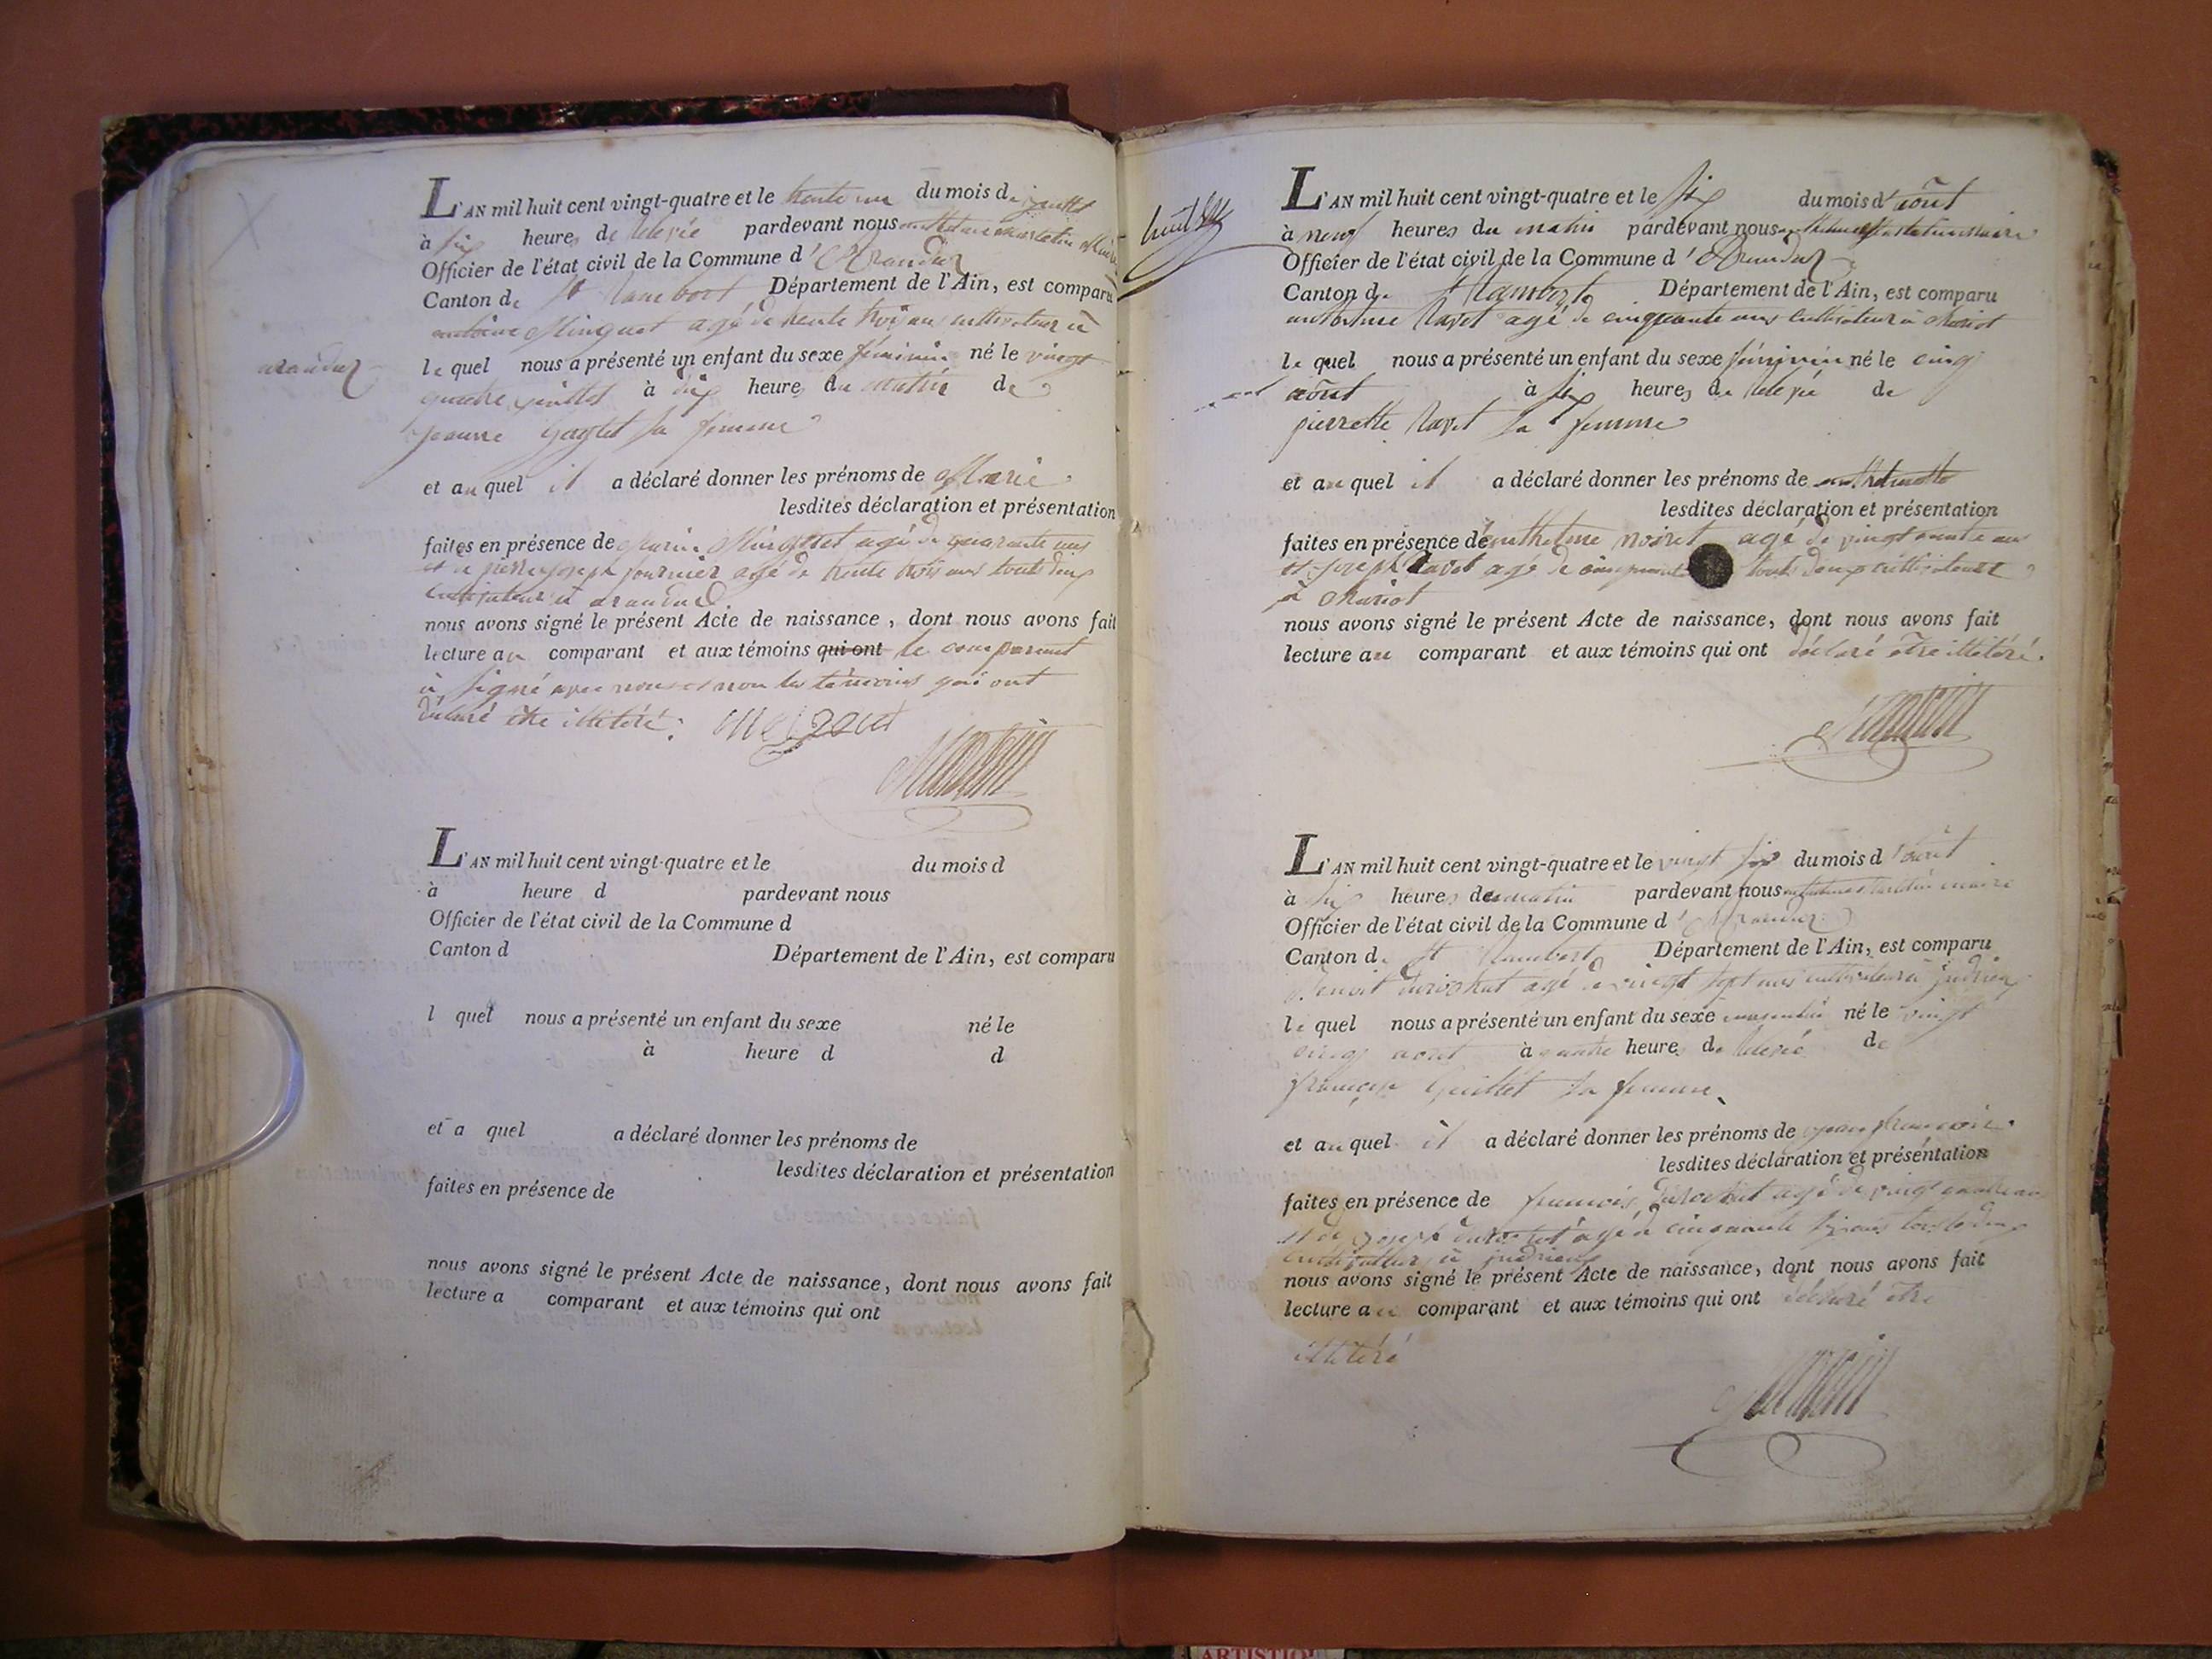 L'AN mil huit cent vingt-quatre et le trente un du mois de juillet
à six heures de relevée pardevant nous anthelme martelin Maire
Officier de l'état civil de la Commune d'Arandaz
Canton de St Rambert Département de l'Ain, est comparu
antoine Minguet agé de trente trois ans cultivateur à
arandaz
le quel nous a présenté un enfant du sexe féminin né le vingt
quatre juillet à dix heures du matin de
jeanne sa femme
et auquel il a déclaré donner les prénoms de Marie
lesdites déclaration et présentation
faites en présence de agé de quarante ans
et de pierre joseph fournier agé de trente trois ans touts deux
cultivateur à arandaz
nous avons signé le présent Acte de naissance, dont nous avons fait
lecture au comparant et aux témoins qui ont le comparant
à signé avec nous et non les témoins qui ont
déclaré être illitéré.
L'AN mil huit cent vingt-quatre et le du mois d
à heure d pardevant nous
Officier de l'état civil de la Commune d
Canton d Département de l'Ain, est comparu
l quel nous a présenté un enfant du sexe né le
à heure d d
et a quel a déclaré donner les prénoms de
lesdites déclaration et présentation
faites en présence de
nous avons signé le présent Acte de naissance, dont nous avons fait
lecture a comparant et aux témoins qui ont
L'AN mil huit cent vingt-quatre et le six du mois d'août
à neuf heures du matin pardevant nous anthelme martelin maire
Officier de l'état civil de la Commune d'Arandaz
Canton de St Rambert Département de l'Ain, est comparu
anthelme Ravet agé de cinquante ans cultivateur à
le quel nous a présenté un enfant du sexe féminin né le cinq
août à six heures de relevée de
pierrette Ravet sa femme
et auquel il a déclaré donner les prénoms de anthelmette
lesdites déclaration et présentation
faites en présence de anthelme agé de vingt ans
et joseph Ravet agé de cinquante touts deux cultivateurs
à
nous avons signé le présent Acte de naissance, dont nous avons fait
lecture au comparant et aux témoins qui ont déclaré être illitéré.
L'AN mil huit cent vingt-quatre et le vingt six du mois d'août
à six heures du matin pardevant nous anthelme martelin maire
Officier de l'état civil de la Commune d'Arandaz
Canton de St Rambert Département de l'Ain, est comparu
Benoit agé de vingt sept ans cultivateur à
le quel nous a présenté un enfant du sexe masculin né le vingt
cinq août à quatre heures de relevée de
françoise Guillet sa femme
et auquel il a déclaré donner les prénoms de jean françois
lesdites déclaration et présentation
faites en présence de françois agé de vingt quatre ans
et de joseph agé de cinquante six ans touts deux
cultivateur à
nous avons signé le présent Acte de naissance, dont nous avons fait
lecture au comparant et aux témoins qui ont déclaré être
illitéré
ARTISTIQ